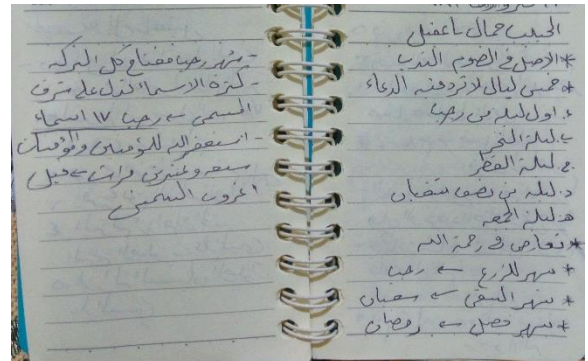 الحبيب جمال باعقيل
* الاصل في الصوم الندب
* خمس ليالي لا ترد فيه الدعاء
أ. اول ليلة من رجب
ب. ليلة النحر
ج. ليلة الفطر
د. ليلة من نصف شعبان
هـ. ليلة الجمعه
* في رحمة الله
* شهر للزرع ← رجب
* شهر السقي ← شعبان
* شهر حصل ← رمضان
- شهر رجب مفتاح كل البركه
- كثرة الاسماء تدل على شرف
المسمى ← رجب ١٧ اسماء
- استغفر الله للمؤمنين والمؤمنات
سبعه وعشرين مرات ← قبل
اغروب الشمس